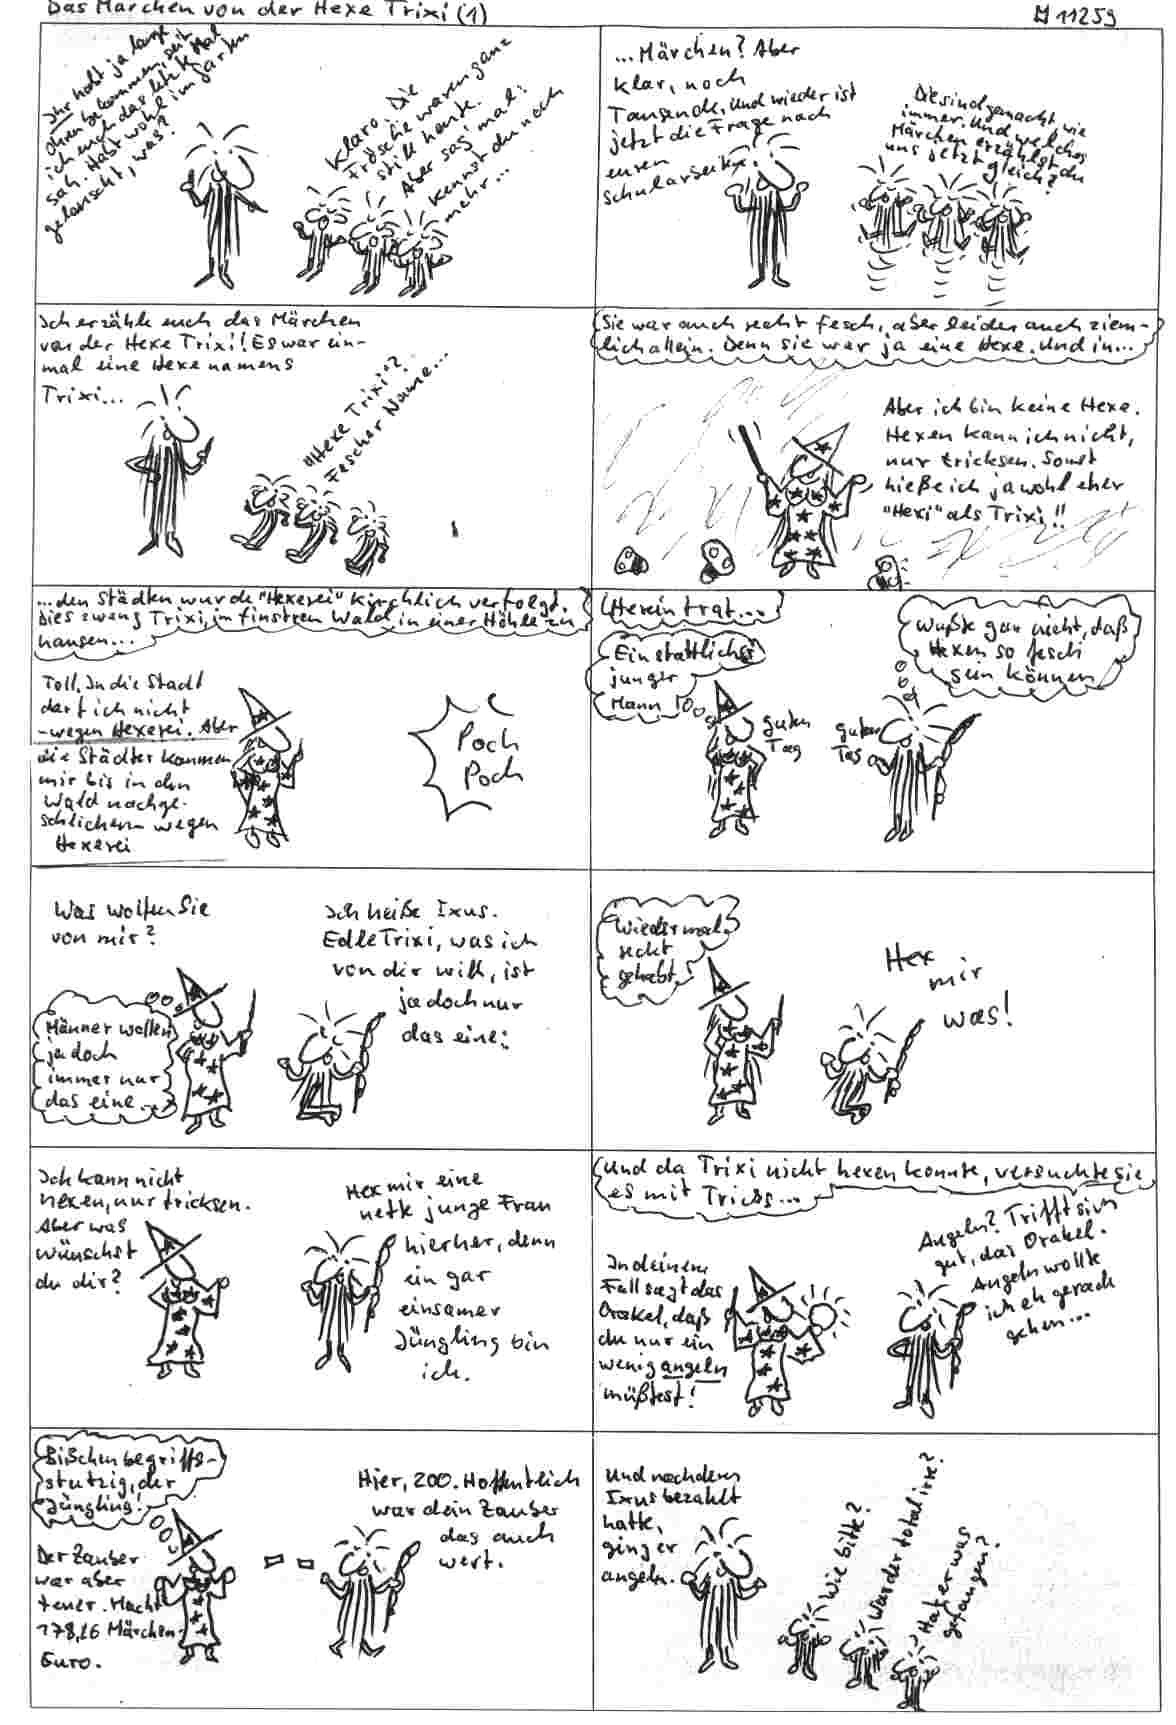 Das Märchen von der Hexe Trixi (1)
11259
Ihr habt ja lange
Ohren bekommen, seit
ich euch das letzte Mal
sah. Habt wohl im Garten
gelauscht, was?
Klaro. Die
Frösche waren ganz
still heute.
Aber sag' mal:
kennst du noch
mehr...
...Märchen? Aber
klar, noch
Tausende. Und wieder ist
jetzt die Frage nach
euren
Schularbeiten.
Die sind gemacht wie
immer. Und welches
Märchen erzählst du
uns jetzt gleich?
Ich erzähle euch das Märchen
von der Hexe Trixi! Es war ein-
mal eine Hexe namens
Trixi...
"Hexe Trixi"?
Fescher Name...
Sie war auch recht fesch, aber leider auch ziem-
lich allein. Denn sie war ja eine Hexe. Und in...
Aber ich bin keine Hexe.
Hexen kann ich nicht,
nur tricksen. Sonst
hieße ich ja wohl eher
"Hexi" als Trixi!!
...den Städten wurde "Hexerei" kirchlich verfolgt.
Dies zwang Trixi, im finstren Wald in einer Höhle zu
hausen...
Toll. In die Stadt
darf ich nicht
-wegen Hexerei. Aber
die Städter kommen
mir bis in den
Wald nachge-
schlichen - wegen
Hexerei
Poch
Poch
Herein trat...
Ein stattlicher
junger
Mann
guten
Tag
guten
Tag
Wußte gar nicht, daß
Hexen so fesch
sein können
Was wollen Sie
von mir?
Männer wollen
ja doch
immer nur
das eine...
Ich heiße Ixus.
Edle Trixi, was ich
von dir will, ist
ja doch nur
das eine:
Wieder mal
recht
gehabt
Hex
mir
was!
Ich kann nicht
hexen, nur tricksen.
Aber was
wünschst
du dir?
Hex mir eine
nette junge Frau
hierher, denn
ein gar
einsamer
Jüngling bin
ich.
Und da Trixi nicht hexen konnte, versuchte sie
es mit Tricks...
In deinem
Fall sagt das
Orakel, daß
du nur ein
wenig angeln
müßtest!
Angeln? Trifft sich
gut, das Orakel.
Angeln wollte
ich eh gerade
gehen...
Bißchen begriffs-
stutzig, der
Jüngling!
Der Zauber
war aber
teuer. Macht
178,26 Märchen-
Euro.
Hier, 200. Hoffentlich
war dein Zauber
das auch
wert.
Und nachdem
Ixus bezahlt
hatte,
ging er
angeln.
Wie bitte?
War der total irre?
Hat er was
gefangen?